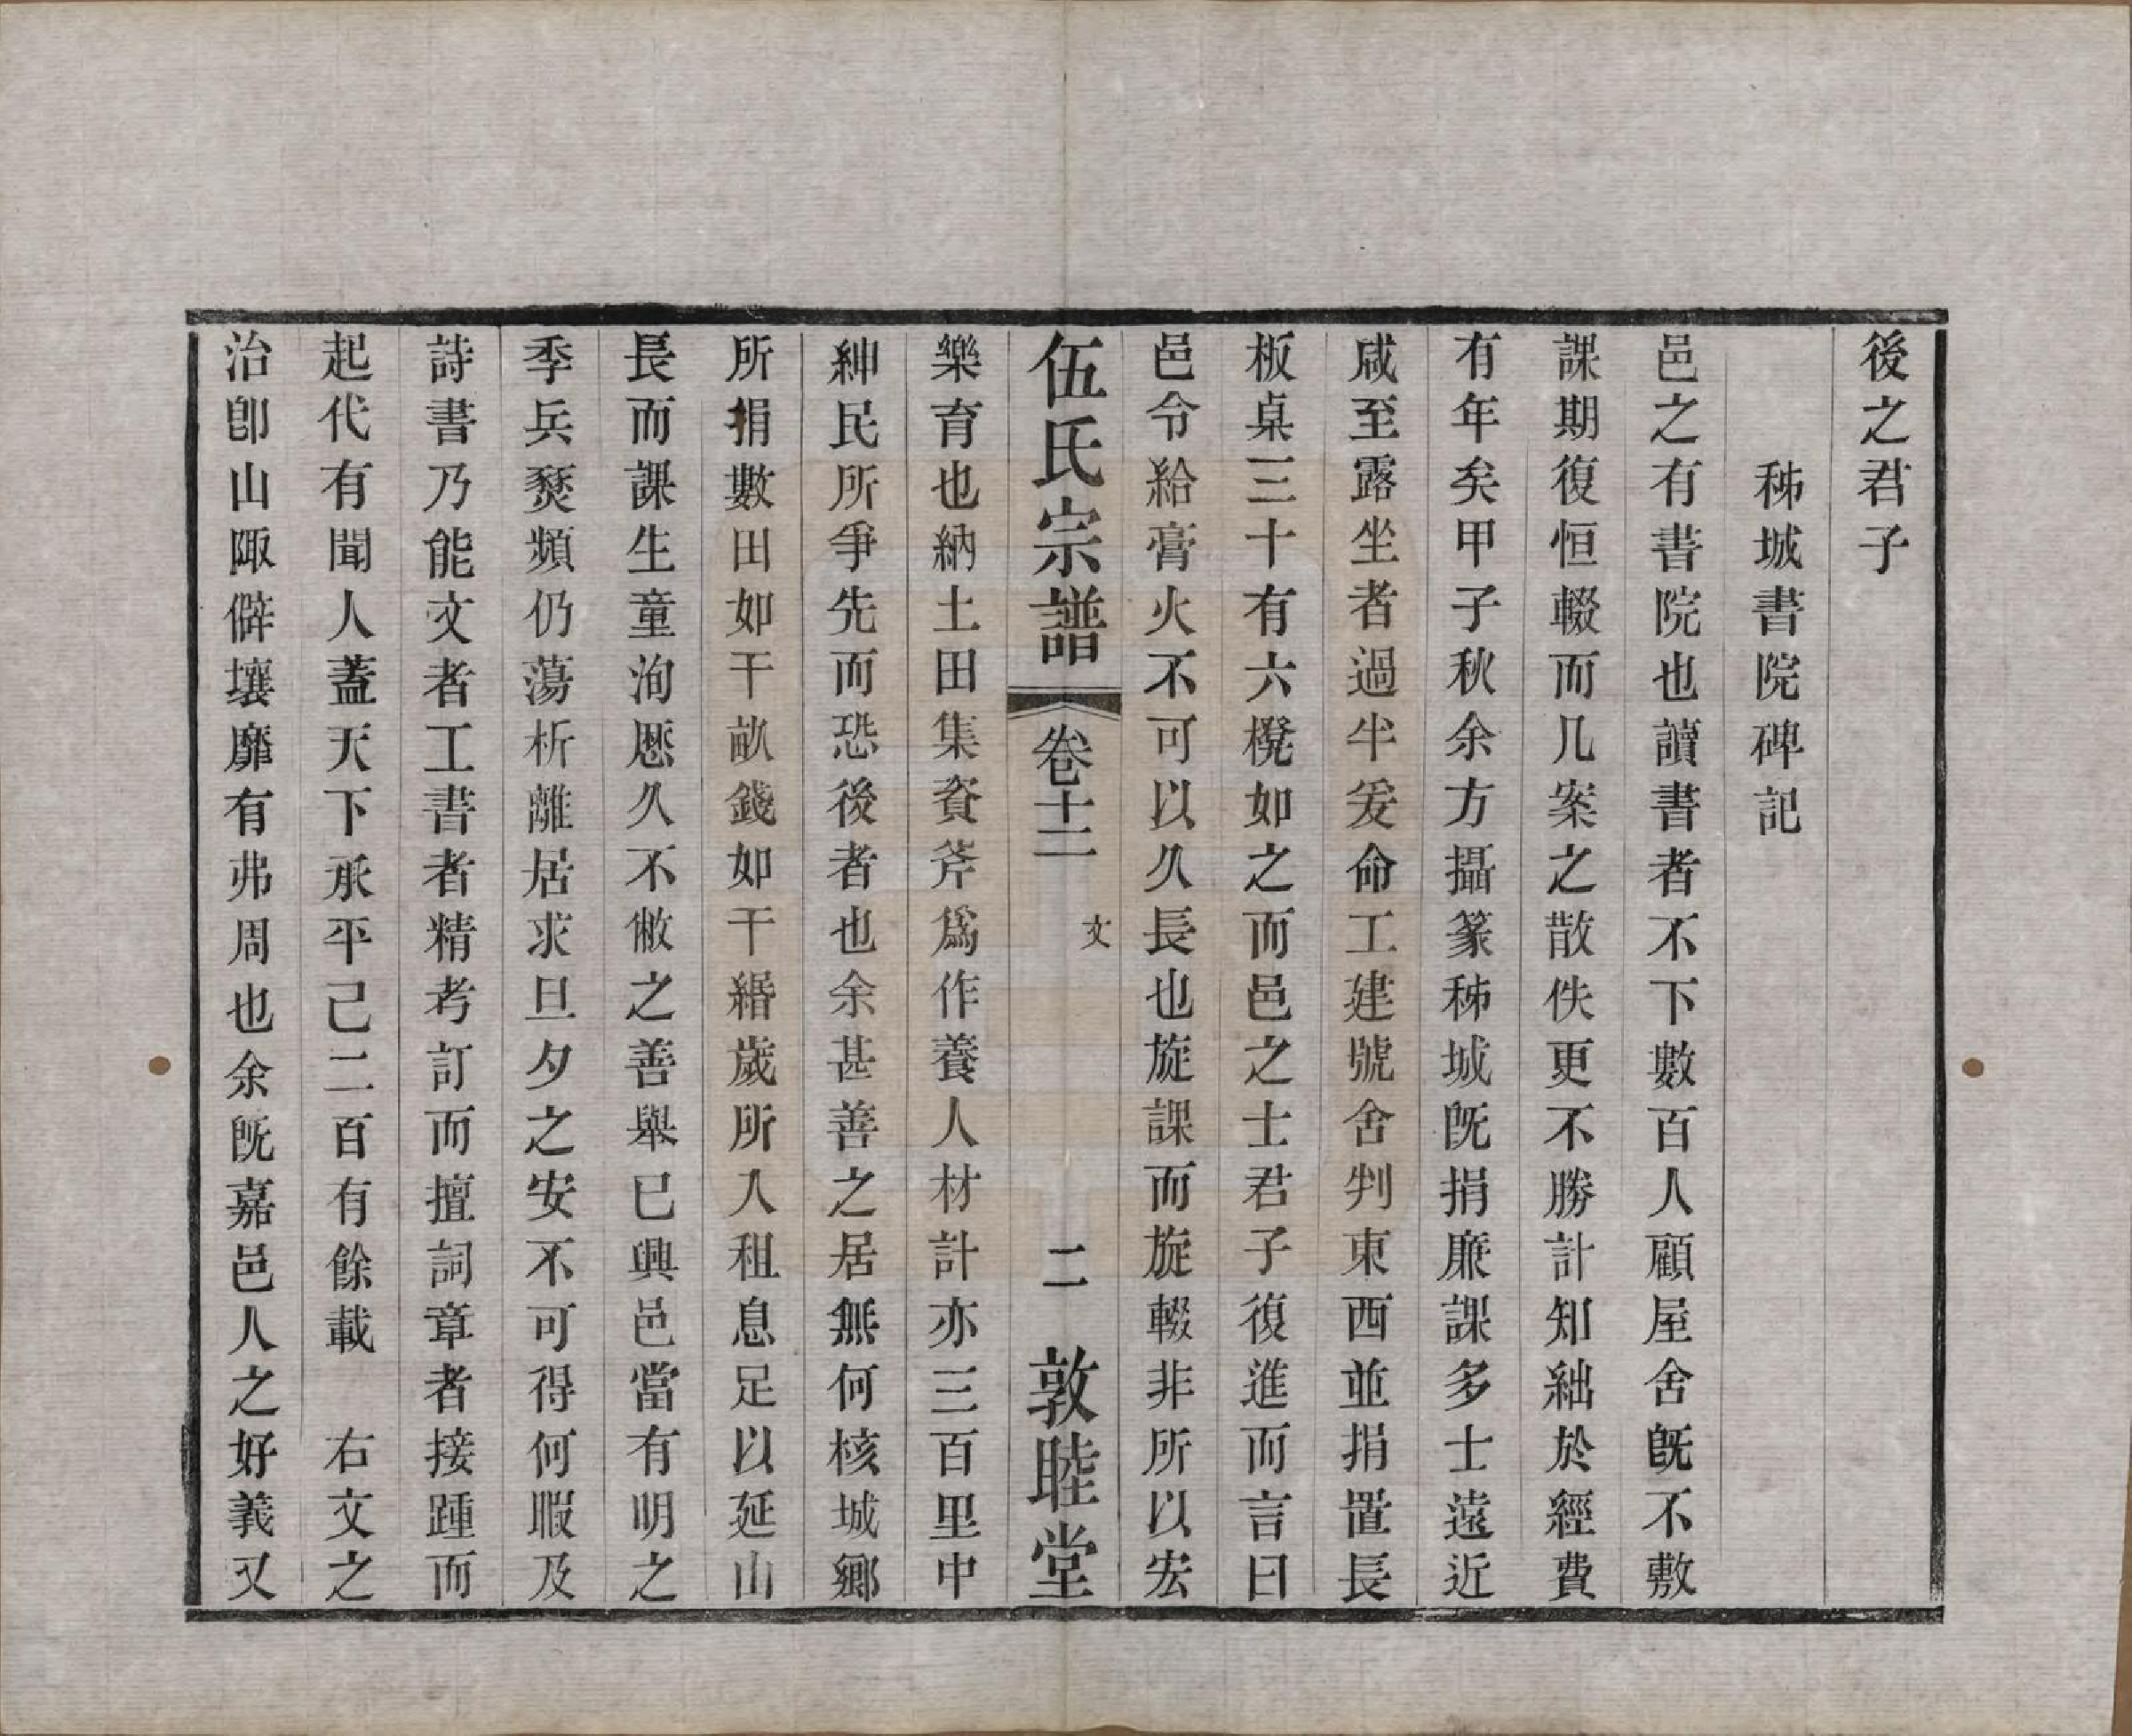 後之君子
秭城書院碑記
邑之有書院也讀書者不下數百人顧屋舍旣不敷
課期復恒輟而几案之散佚更不勝計知絀於經費
有年矣甲子秋余方攝篆秭城旣捐廉課多士遠近
咸至露坐者過半爰命工建號舍判東西並捐置長
板桌三十有六櫈如之而邑之士君子復進而言曰
邑令給膏火不可以久長也旋課而旋輟非所以宏
伍氏宗譜 卷十二 文 二 敦睦堂
樂育也納土田集資斧爲作養人材計亦三百里中
紳民所爭先而恐後者也余甚善之居無何核城鄉
所捐數田如干畝錢如干緡歲所入租息足以延山
長而課生童洵厯久不敝之善舉已興邑當有明之
季兵燹頻仍蕩析離居求旦夕之安不可得何暇及
詩書乃能文者工書者精考訂而擅詞章者接踵而
起代有聞人蓋天下承平己二百有餘載 右文之
治卽山陬僻壤靡有弗周也余旣嘉邑人之好義又